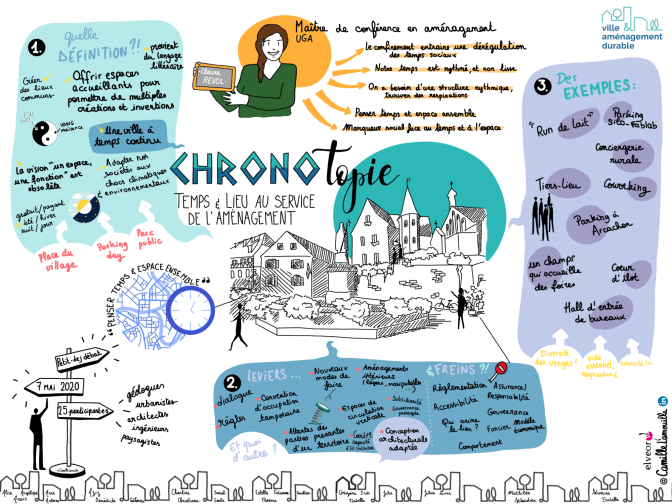 1.
Quelle
DÉFINITION?!
provient
du langage
littéraire
Créer
des lieux
communs
Offrir espaces
accueillants pour
permettre de multiples
créations et inventions
Une ville à
temps continu
La vision "un espace,
une fonction" est
obsolète
Adapter nos
sociétés aux
chocs climatiques
& environnementaux
gratuit/payant
été/hiver
nuit/jour
Place du
village
Parking
day
Parc
public
Maître de conférence en aménagement
UGA
Claire
REVOL
Le confinement entraîne une dérégulation
des temps sociaux
Notre temps est rythmé, et non lisse
On a besoin d'une structure rythmique,
trouver des respirations
Penser temps et espace ensemble
Marqueur social face au temps et à l'espace
ville &
aménagement
durable
CHRONOTopie
TEMPS & LIEU AU SERVICE
DE L'AMÉNAGEMENT
3.
Des
EXEMPLES:
"Run de lait"
Parking
silo-fablab
Conciergerie
rurale
Tiers-Lieu
Coworking
Parking à
Arcachon
un champs
qui accueille
des foires
Coeur
d'îlot
Hall d'entrée
de bureaux
Diversité
des usages!
Vide
essentiel,
respiration!
"PENSER TEMPS & ESPACE ENSEMBLE"
Petit-dej débat
7 MAI 2020
25 participantes
géologues
urbanistes
architectes
ingénieurs
paysagistes
2.
LEVIERS...
dialogue
règles
Convention
d'occupation
temporaire
Nouveaux
modes de
faire
Attentes des
parties prenantes
d'un territoire
Aménagements
intérieurs
Espaces de
circulation
verticale
Subsidiarité
Gouvernance
partagée
Conception
architecturale
adaptée
Et quoi
d'autre ?
FREINS ?!
Règlementation
Accessibilité
Qui anime
le lieu ?
Comportement
Assurance/
Responsabilité
Gouvernance
Foncier
Modèle
économique
elvear
© Camille Limouille